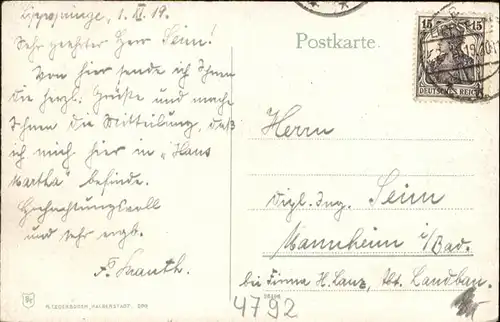 Lippspringe, 1. VI. 19.
Sehr geehrter Herr Seim!
Von hier sende ich Ihnen
die herzl. Grüße und mache
Ihnen die Mitteilung, daß
ich mich hier in "Haus
Martha" befinde.
Hochachtungsvoll
und sehr ergb.
Postkarte.
15 15
DEUTSCHES REICH
Herrn
Dipl. Ing. Seim
Mannheim i/Bad.
bei Firma H. Lanz, Abt. Landbau.
4792